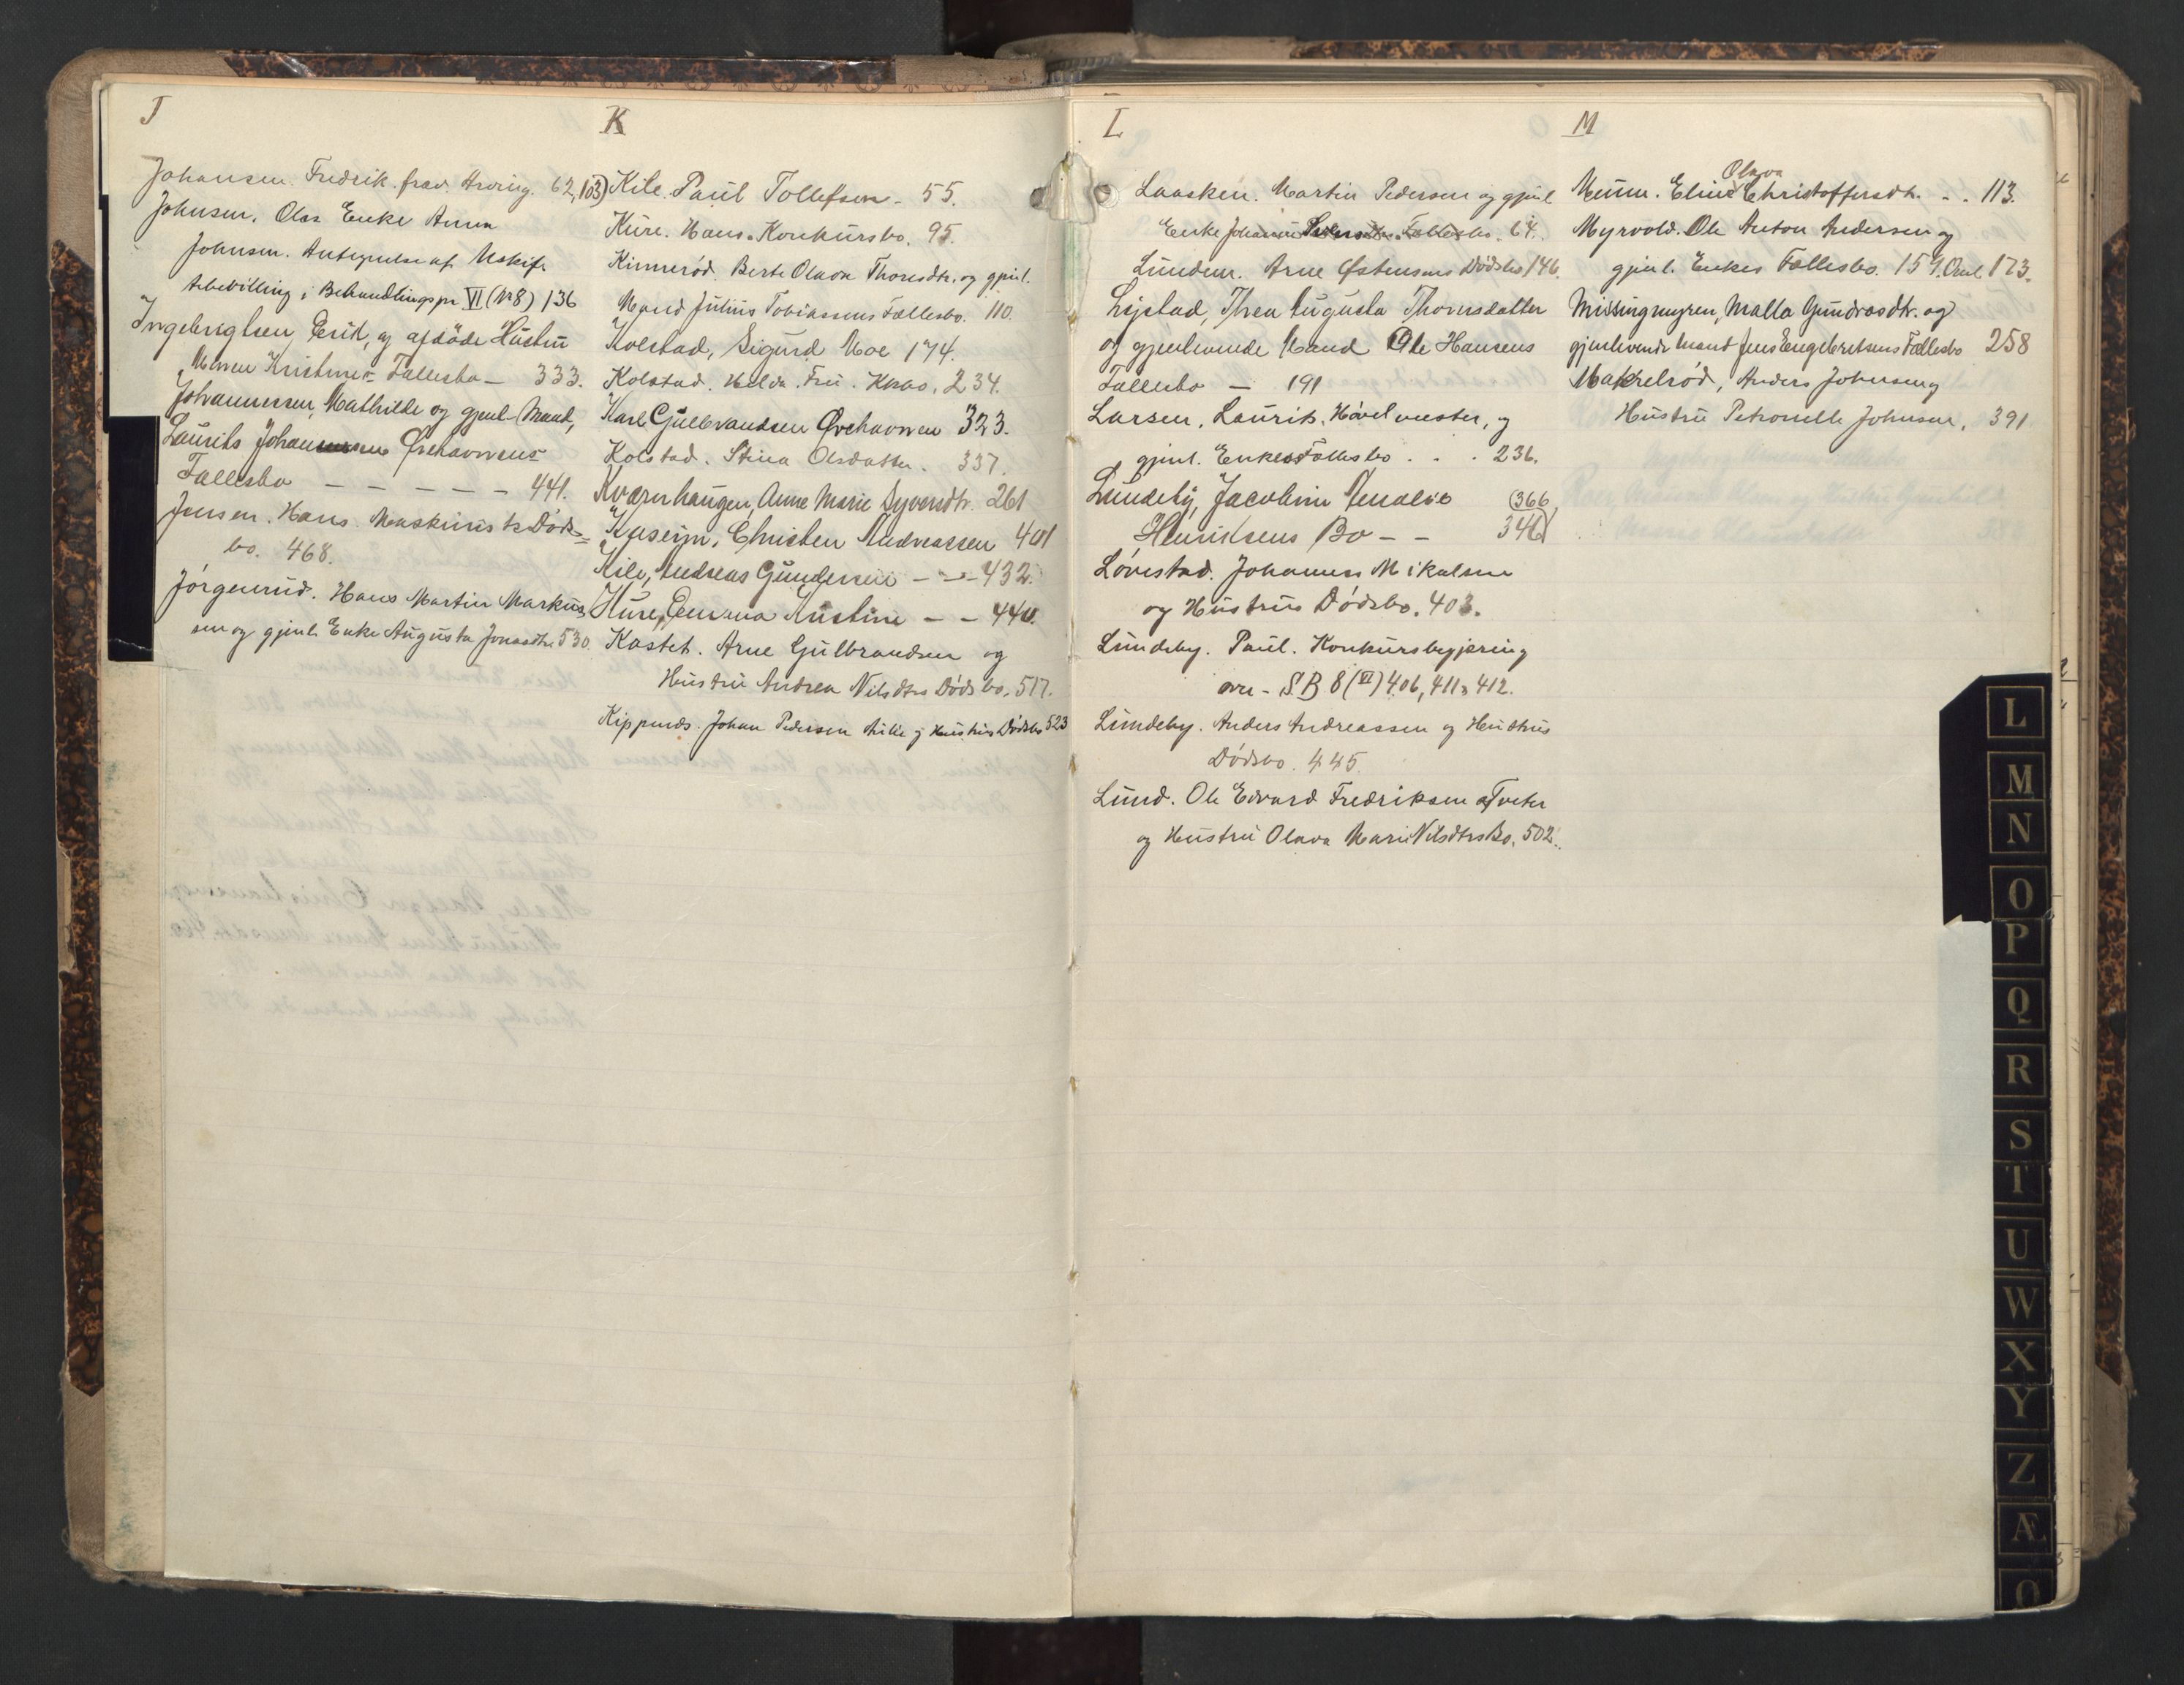 J
Johansen. Fredrik. frav. Arving. 62, 103)
Johnsen. Olas Enke Anna
Johnsen. Antegnelse af Uskifte
bevilling i Behandlingspr VI (No 8) 136
Ingebrigtsen Erik, og afdöde Hustru
Maren Kristines Fællesbo — 333.
Johannessen, Mathilde og gjenl. Mand,
Laurits Johannessen Ørehavnens
Fællesbo — — — — — 441.
Jensen. Hans. Maskinists Døds=
bo. 468.
Jörgenrud. Hans Martin Markus
sen og gjenl. Enke Augusta Jonasdtr. 530.
K
Kile. Paul Tollefsen. 55.
Kure. Hans. Konkursbo. 95.
Kinnerød. Berte Olava Thoresdtr. og gjenl.
Mand Julius Tobiassens Fællesbo. 110.
Kolstad, Sigurd Moe 174.
Kolstad. Hilda. Fru. Knbo. 234.
Karl Gulbrandsen Ørehavnen 323.
Kolstad. Stina Olsdatter. 337.
Kværnhaugen, Anne Marie Syversdtr. 261
Kaserjn, Christen Andreassen 401
Kile, Andreas Gundersen — — 432.
Kure, Emma Kristine — — 440.
Kastet. Arne Gulbrandsen og
Hustru Andrea Nilsdtrs Dødsbo. 517.
Kippenes. Johan Pedersen Mille og Hustrus Dødsbo 523
L
Laasken. Martin Pedersen og gjenl
Enke Johanne Pedersdtrs Fællesbo. 64.
Lunden. Arne Østensens Dødsbo 146.
Lystad, Thea Augusta Thorersdatter
og gjenlevende Mand Ole Hansens
Fællesbo — 191
Larsen, Laurits, Hövelmester, og
gjenl. Enkes Fællesbo . . . 236.
Lundeby, Jacobine Amalie (366,
Henriksens Bo — — 346)
Lövestad. Johannes Mikalsen
og Hustrus Dødsbo. 403.
Lundeby. Paul. Konkursbegjæring
over - S.B 8 (VI) 406, 411 & 412.
Lundeby. Anders Andreassen og Hustrus
Dødsbo. 445.
Lund. Ole Edvard Fredriksen a/Tveter
og Hustru Olava Marie Nilsdtrs Bo. 502.
M
Olava
Munn. Eline Christoffersdtr. - . 113.
Myrvold. Ole Anton Andersen og
gjenl. Enkes Fællesbo. 159. Oml 173.
Missingmyren, Malla Gundrosdtr. og
gjenlevende Mand Jens Engebretsens Fællesbo 258
Makrelröd, Anders Johnsen og
Hustru Petronelle Johnsen, 391
L
M
N
O
P
Q
R
S
T
U
W
X
Y
Z
Æ
Ø